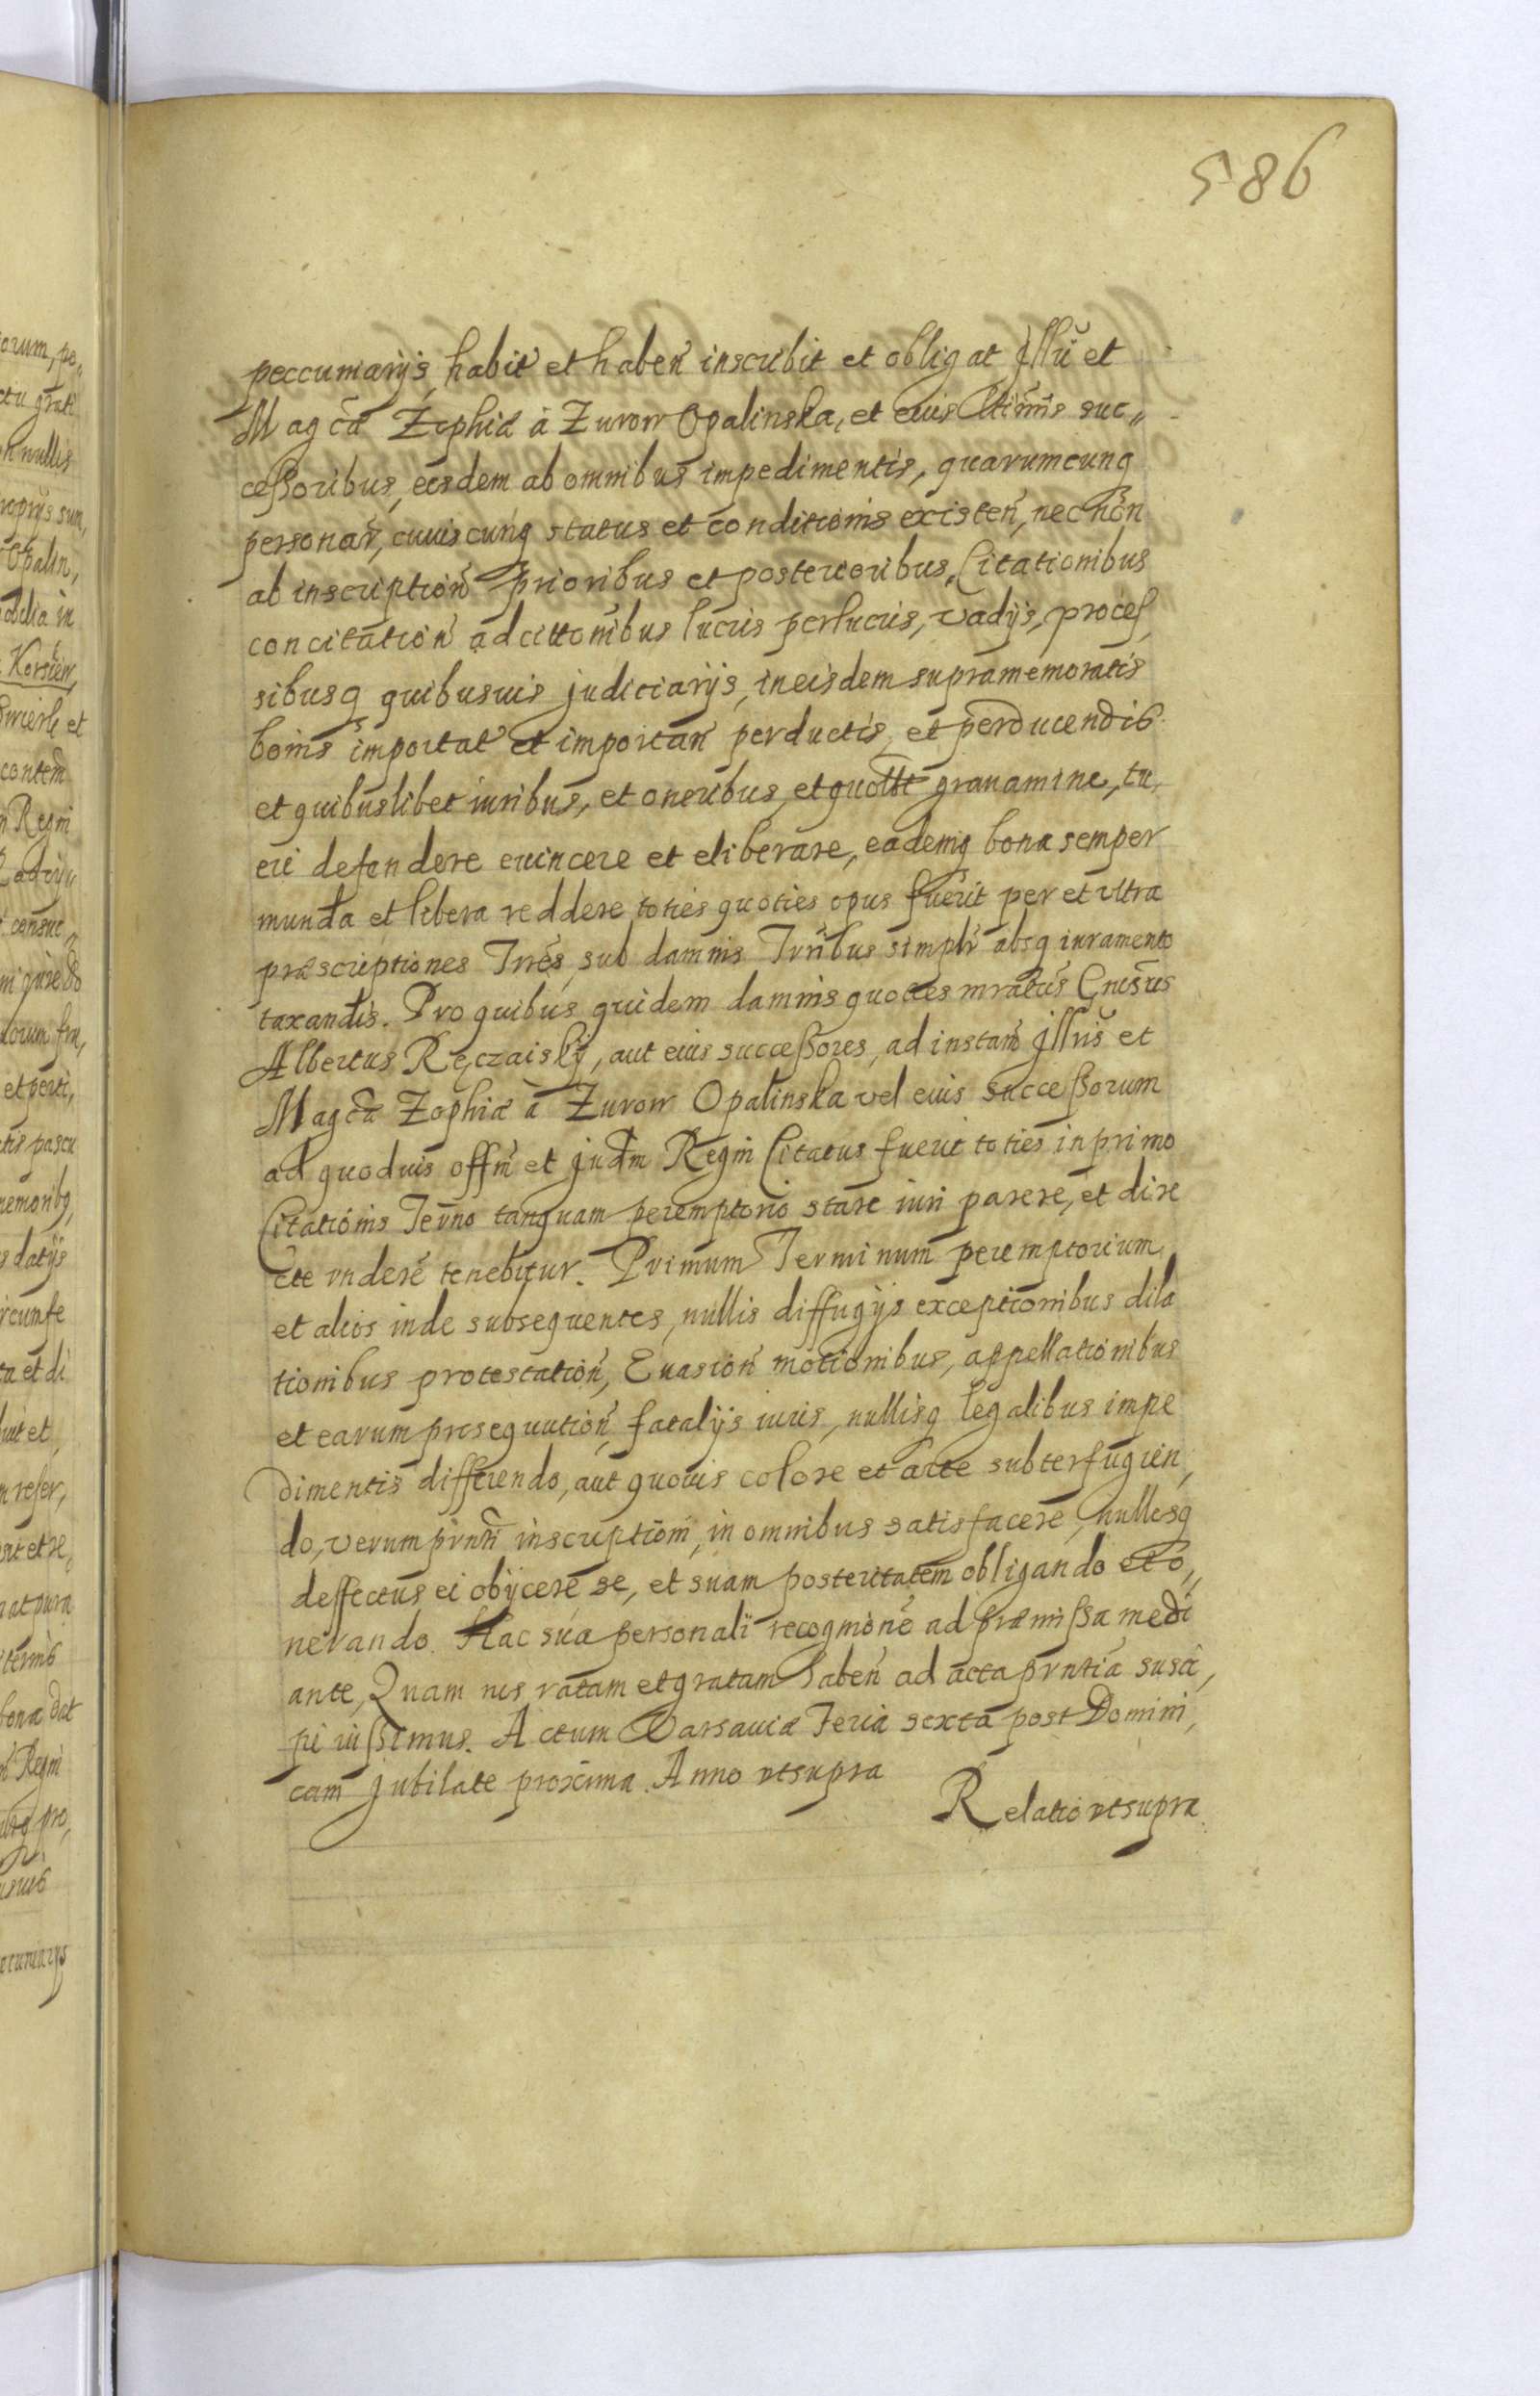 586
peccuniarijs habit et haben inscribit et obligat Jllri et
Magca Zophiæ à Zurow Opalinska, et eius ltimis suc„
cessoribus, eisdem ab omnibus impedimentis, quarumcunq
personar, cuuiscunq status et conditionis existen, nec non
ab inscription prioribus et posterioribus, Citationibus
concitation adcittonibus lucris perlucris, vadijs, proces,
sibusq quibusuis judiciarijs, in eisdem supramemoratis
bonis importat et importan perductis, et perducendis
et quibuslibet iuribus, et oneribus, et quolbt grauamine, tu,
eri defendere euincere et eliberare, eademq bona semper
munda et libera reddere, toties quoties opus fuerit per et vltra
præscriptiones Trres, sub damnis Trribus simplr absq iuramento
taxandis. Pro quibus quidem damnis quoties mratus Gnrsus
Albertus Ręczaiski, aut eius successores, ad instam jllris et
Magca Zophiæ à Zurow Opalinska vel eius Successorum
ad quoduis offm et judm Regni Citatus fuerit toties in primo
Citationis Terno tanquam peremptorio stare iuri parere, et dire
cte rndere tenebitur. Primum Terminum peremptorium
et alios inde subsequentes, nullis diffugijs exceptionibus dila
tionibus protestation, Euasion motionibus, appellationibus
et earum prosequution, fatalijs iuris, nullisq legalibus impe
dimentis differendo, aut quouis colore et arte subterfugien,
do, verum prnti inscriptioni, in omnibus satisfacere, nullosq
deffectus ei obijcere se, et suam posteritatem obligando et o„
nerando. Hac sua personali recognione ad præmissa medi
ante, Quam nos ratam et gratam haben ad acta prntia susci,
pi iussimus. Actum Varsauiæ Feria sexta post Domini,
cam Jubilate proxima. Anno vtsupra
Relatio vtsupra